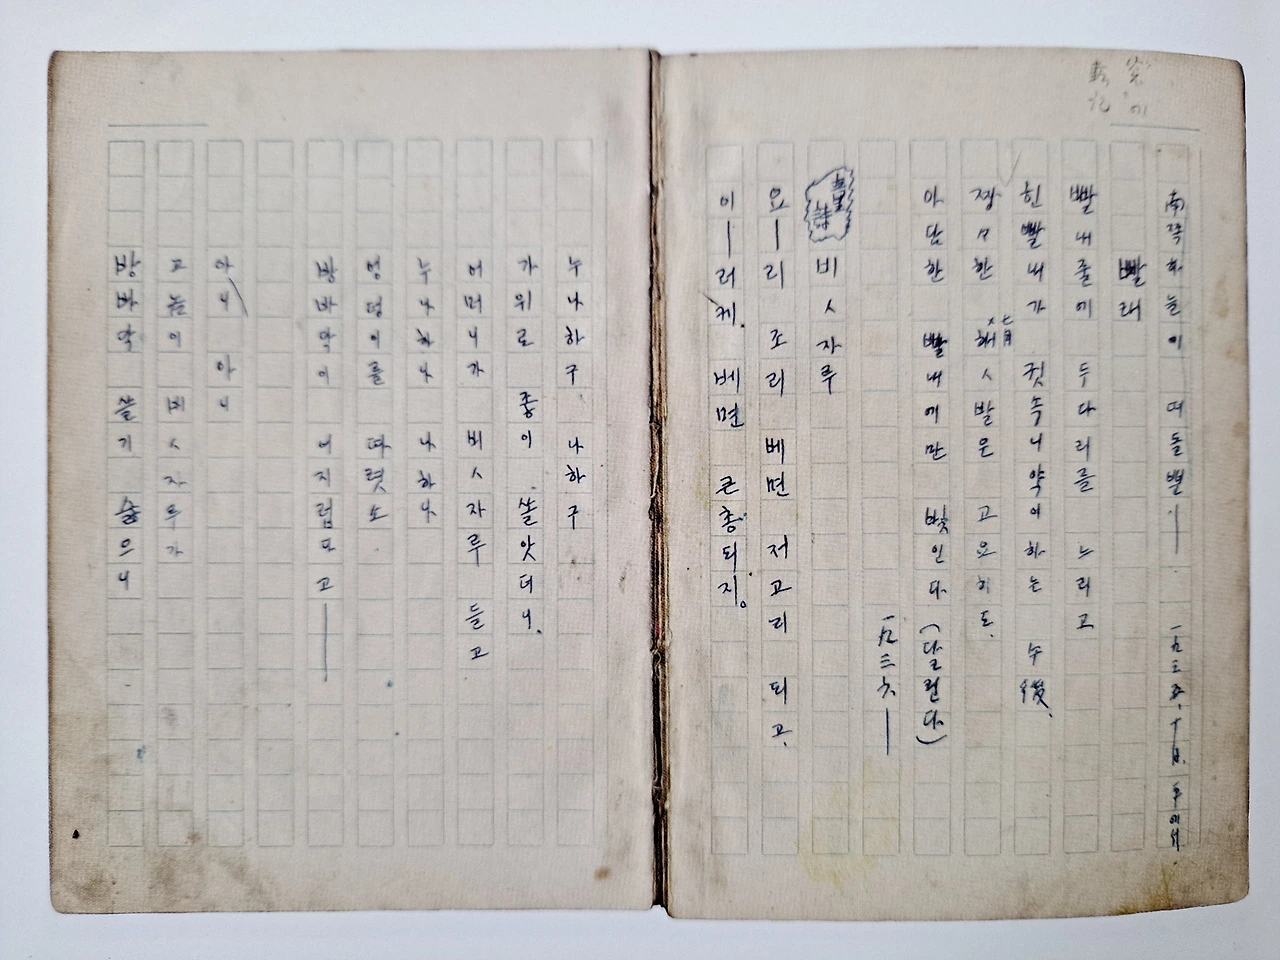 南쪽하늘이 떠돌뿐ㅣ. 一九三五, 十月. 平에서.
빨래
빨내줄에 두다리를 느리고
힌빨내가 귓속니약이하는 午後,
짱々한 七月 해ㅅ발은 고요히도,
아담한 빨내에만 빛인다 (달린다)
一九三六ㅣ
童詩 비ㅅ자루
요ㅣ리 조리 베면 저고리 되고,
이ㅣ러케. 베면 큰총되지。
누나하구 나하구
가위로 종이 쏠앗더니,
어머니가 비ㅅ자루 들고
누나하나 나하나
엉덩이를 따렷소
방바닥이 어지럽다고ㅣ
아니 아니
고놈이 비ㅅ자루가
방바닥 쓸기 슬으니